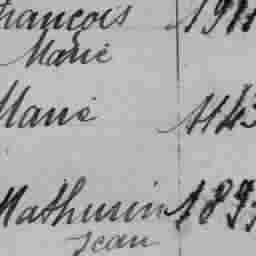 François
Marie
Marie 1143
Mathurin 189
Jean